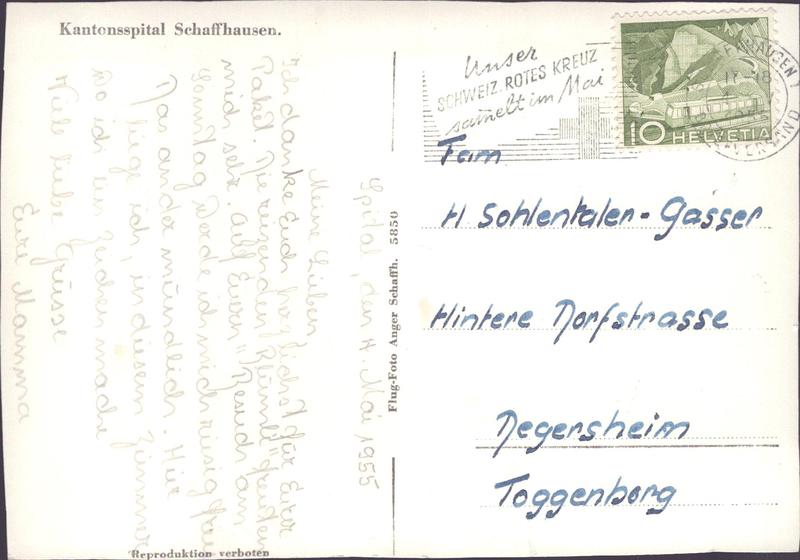 Kantonsspital Schaffhausen.
Spital, den 4 Mai 1955
Meine Lieben
Ich danke Euch herzlichst für Euer
Paket. Die reizenden Blüml freuten
mich sehr. Auf Euern Besuch am
Sonntag werde ich mich riesig freuen
Das andre mündlich. Hier
liege ich, in diesem Zimmer
wo ich ein Zeichen mache
Viele liebe Grüsse
Eure Mamma
Flug-Foto Anger Schaffh. 5850
Reproduktion verboten
Unser
SCHWEIZ. ROTES KREUZ
sammelt im Mai
10 HELVETIA
Fam
H Sohlentaler-Gasser
Hintere Dorfstrasse
Degersheim
Toggenborg